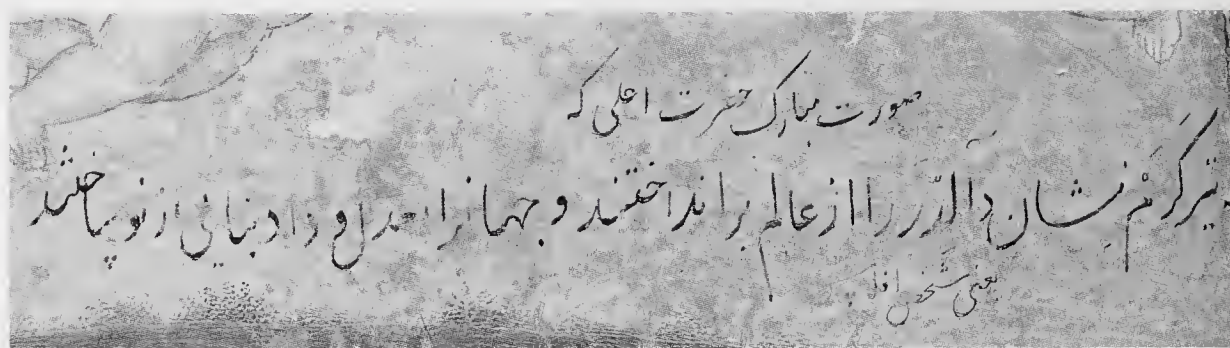 صورت مبارک حضرت اعلی که
بتیر کرم نشان دالدّر را از عالم برانداختند و جهانرا بعدل و داد بنایی از نو ساختند
یعنی شخص